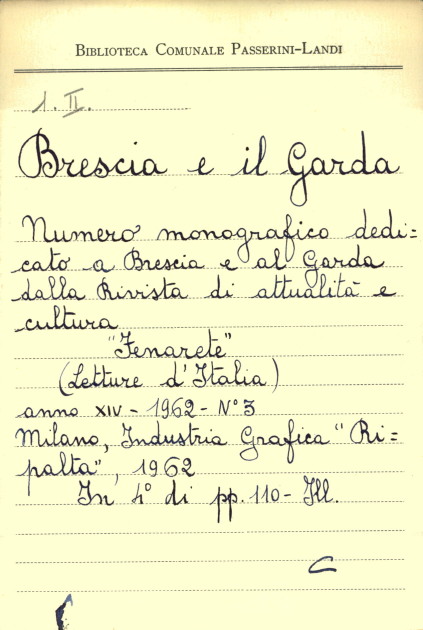 BIBLIOTECA COMUNALE PASSERINI-LANDI
1. II.
Brescia e il Garda
Numero monografico dedi=
cato a Brescia e al Garda
dalla Rivista di attualità e
cultura
"Fenarete"
(Letture d'Italia)
anno XIV - 1962 - N° 3
Milano, Industria Grafica "Ri=
palta", 1962
In 4° di pp. 110 - Ill.